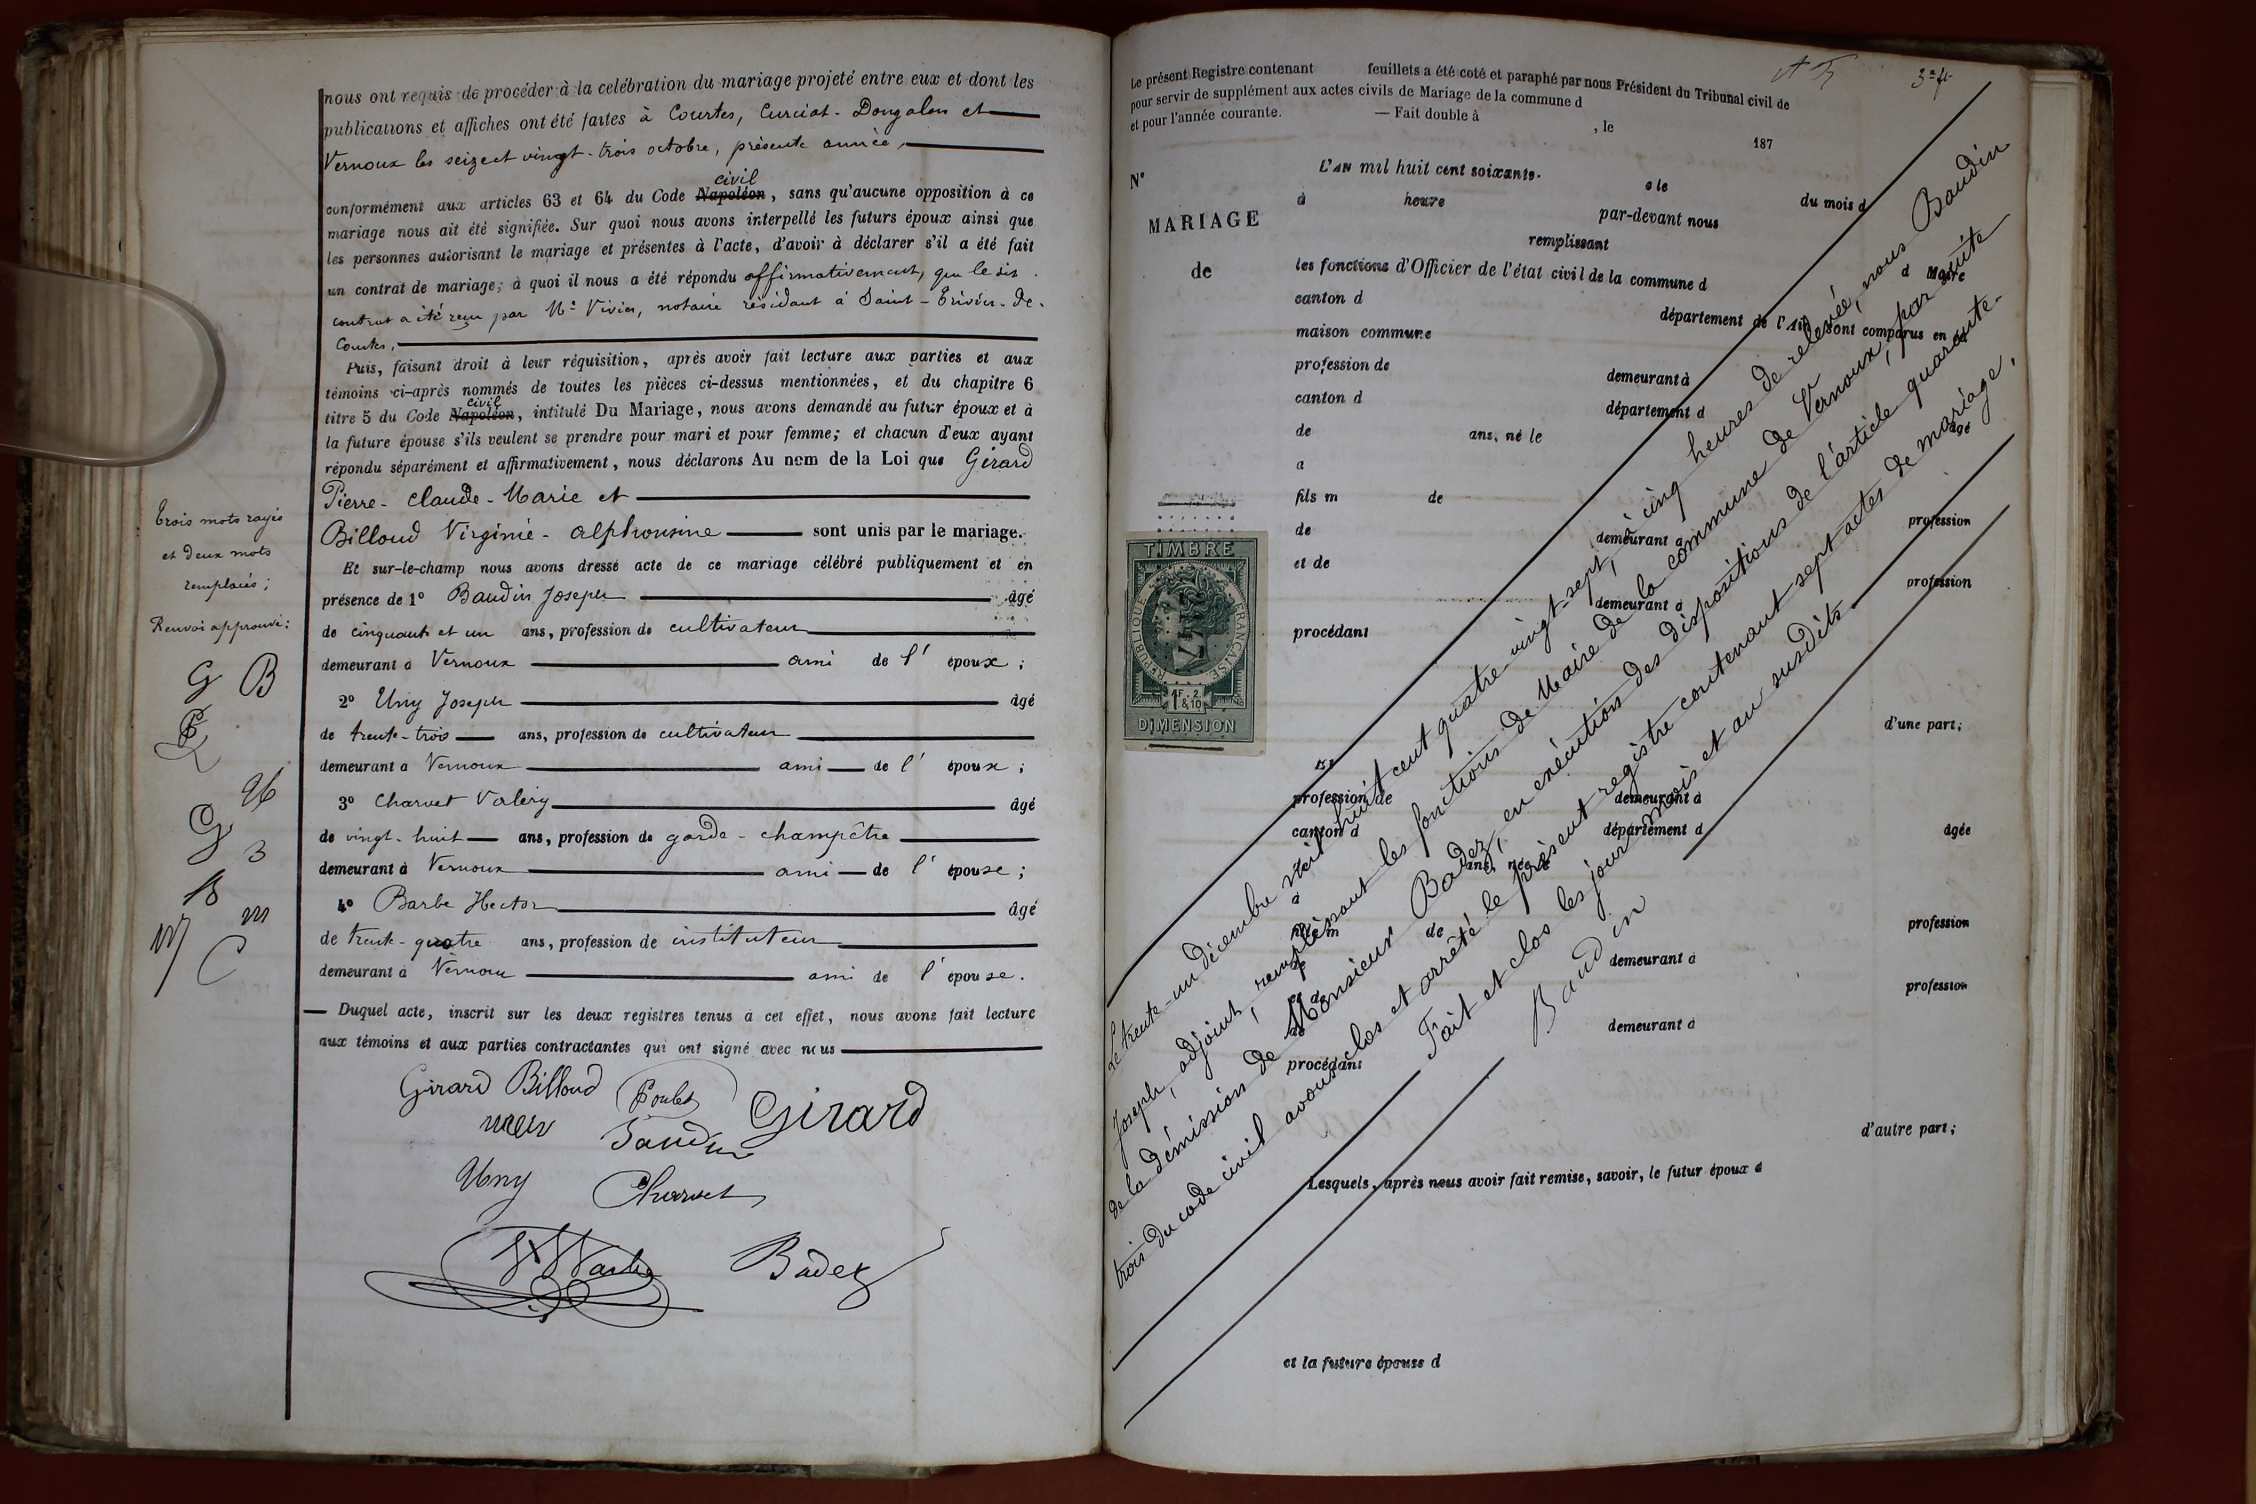 nous ont requis de procéder à la celébration du mariage projeté entre eux et dont les
publications et affiches ont été faites à Courtes, Curciat-Dongalon et
Vernoux les seize et vingt-trois octobre, présente année,
civil
conformément aux articles 63 et 64 du Code Napoléon, sans qu'aucune opposition à ce
mariage nous ait été signifiée. Sur quoi nous avons interpellé les futurs époux ainsi que
les personnes autorisant le mariage et présentes à l'acte, d'avoir à déclarer s'il a été fait
un contrat de mariage; à quoi il nous a été répondu affirmativement, que le dit
contrat a été reçu par Me Vivier, notaire résidant à Saint-Trivier-de-
Courtes,
Puis, faisant droit à leur réquisition, après avoir fait lecture aux parties et aux
témoins ci-après nommés de toutes les pièces ci-dessus mentionnées, et du chapitre 6
civil
titre 5 du Code Napoléon, intitulé Du Mariage, nous avons demandé au futur époux et à
la future épouse s'ils veulent se prendre pour mari et pour femme; et chacun d'eux ayant
répondu séparément et affirmativement, nous déclarons Au nom de la Loi que Girard
Pierre-Claude-Marie et
Billoud Virginie-Alphonsine sont unis par le mariage.
Et sur-le-champ nous avons dressé acte de ce mariage célébré publiquement et en
présence de 1° Baudin Joseph âgé
de cinquante et un ans, profession de cultivateur
demeurant à Vernoux ami de l' époux ;
2° Uny Joseph âgé
de trente-trois ans, profession de cultivateur
demeurant à Vernoux ami de l' époux ;
3° Charvet Valéry âgé
de vingt-huit ans, profession de garde-champêtre
demeurant à Vernoux ami de l' épouse ;
4° Barbe Hector âgé
de trente-quatre ans, profession de instituteur
demeurant à Vernoux ami de l' épouse.
— Duquel acte, inscrit sur les deux registres tenus à cet effet, nous avons fait lecture
aux témoins et aux parties contractantes qui ont signé avec nous
Girard Billoud Poulet Girard
Baudin
Uny Charvet
Barbe Badez
Trois mots rayés
et deux mots
remplacés ;
Renvoi approuvé :
G B
P
G
B
m
C
Le présent Registre contenant feuillets a été coté et paraphé par nous Président du Tribunal civil de
pour servir de supplément aux actes civils de Mariage de la commune d
et pour l'année courante. — Fait double à , le 187
N°
MARIAGE
de
L'AN mil huit cent soixante-
e le du mois d
à heure par-devant nous
remplissant
les fonctions d'Officier de l'état civil de la commune d
canton d département de l'Ain sont comparus en la
maison commune
profession de demeurant à
canton d département d
de ans, né le âgé
a
fils m de
de demeurant à profession
et de profession
demeurant à
procédant
d'une part;
Et
profession de demeurant à
canton d département d âgée
ans, née le
à
fille m de profession
de demeurant à
et de profession
demeurant à
procédant
d'autre part;
Lesquels, après nous avoir fait remise, savoir, le futur époux d
et la future épouse d
TIMBRE
REPUBLIQUE FRANÇAISE
1F. 2 & 10
DIMENSION
Le trente-un décembre mil huit cent quatre-vingt-sept, à cinq heures de relevée, nous Baudin
Joseph, adjoint, remplissant les fonctions de Maire de la commune de Vernoux, par suite
de la démission de Monsieur Badez, en exécution des dispositions de l'article quarante-
trois du code civil avons clos et arrêté le présent registre contenant sept actes de mariage.
Fait et clos les jour, mois et an susdits
Baudin